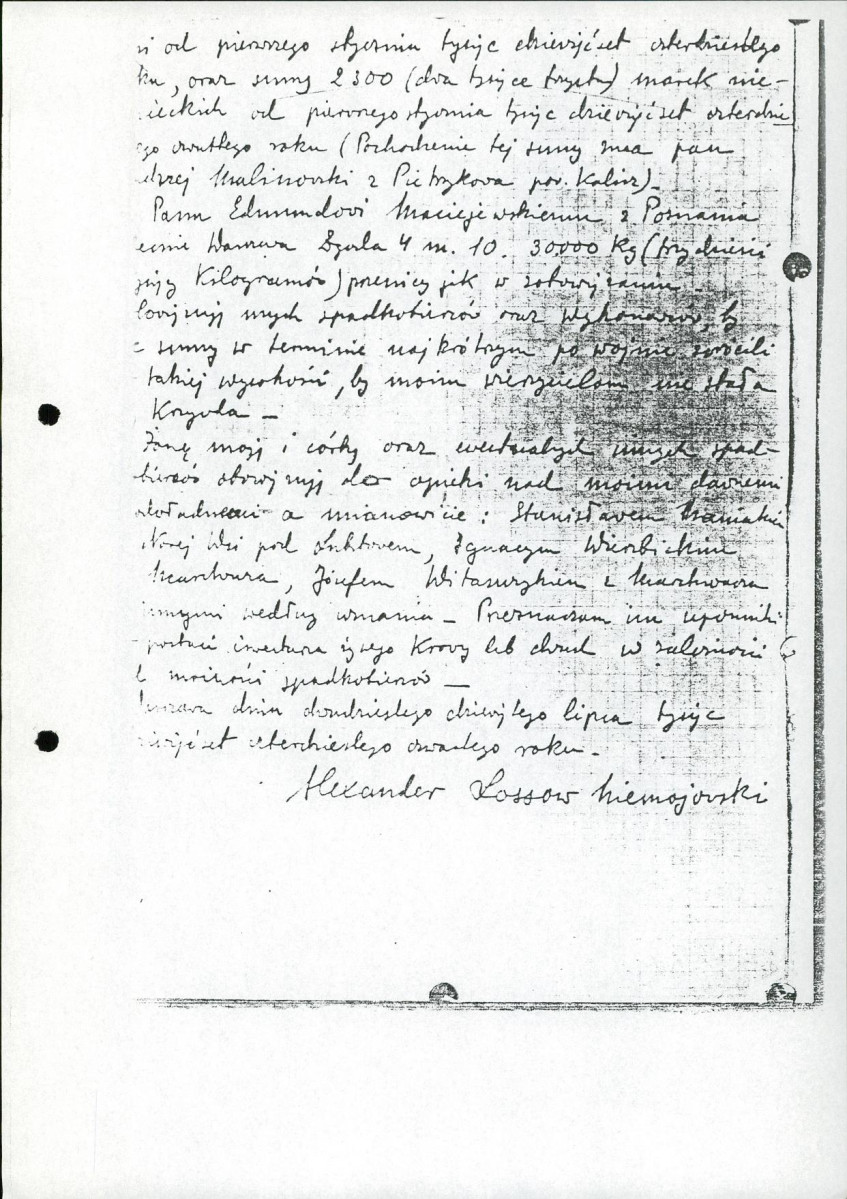 ni od pierwszego stycznia tysiąc dziewięćset czterdziestego
ku, oraz sumy 2300 (dwa tysiące trzysta) marek nie-
ieckich od pierwszego stycznia tysiąc dziewięćset czterdzie
ego czwartego roku (Pochodzenie tej sumy zna pan
drzej Malinowski z Pietrzykowa pow. Kalisz)_
Panu Edmundowi Maciejewskiemu z Poznania
ecnie Warszawa 4 m. 10. 30000 Kg (trzydzieści
sięcy Kilogramów) pszenicy jak w zobowiązaniu_
bowiązuję mych spadkobierców oraz wykonawców, by
e sumy w terminie najkrótszym po wojnie zwrócili
takiej wysokości, by moim wierzycielom nie stała
Krzywda_
Żonę moją i córkę oraz ewentualnych innych spad-
bierców obowiązuję do opieki nad moimi dawnemi
a mianowicie: Stanisławem
Nowej Wsi pod, Ignacym Wierzbickim
Marchwacza, Józefem Witaszczykiem z Marchwacza
innymi według uznania_ Przeznaczam im upominki
postaci inwentarza żywego Krowy lub chud w zależności
d możności spadkobierców_
arszawa dnia dwudziestego dziewiątego lipca tysiąc
ziewięćset czterdziestego czwartego roku_
Alexander Lossow Niemojowski